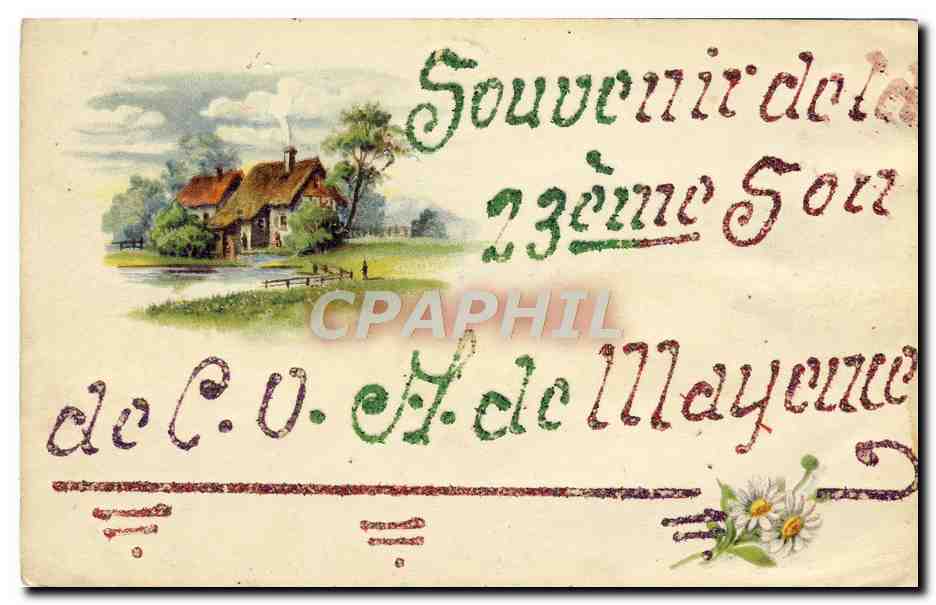 Souvenir de la
23ème Son
CPAPHIL
de C. O. A. de Mayenne